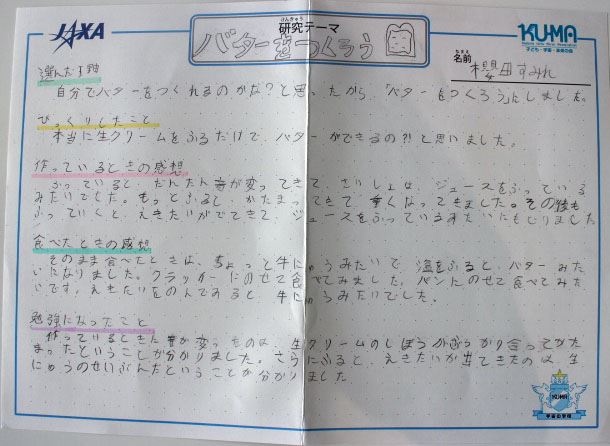 JAXA
けんきゅう
研究テーマ
バターをつくろう
KUMA
子ども・宇宙・未来の会
なまえ
名前 櫻田すみれ
選んだ理由
自分でバターをつくれるのかな?と思ったから「バターをつくろう」にしました。
びっくりしたこと
本当に生クリームをふるだけで、バターができるの?!と思いました。
作っているときの感想
ふっていると、だんだん音が変ってきて、さいしょは、ジュースをふっている
みたいでした。もっとふると、かたまってきて重くなってきました。その後も
ふっていくと、えきたいがでてきて、ジュースをふっているみたいにもどりました
食べたときの感想
そのまま食べたときは、ちょっと牛にゅうみたいで、塩をふると、バターみた
いになりました。クラッカーにのせて食べてみました。パンにのせて食べてみた
いです。えきたいをのんでみると、牛にゅうみたいでした。
勉強になったこと
作っているときに音が変ったのは、生クリームのしぼうがぶつかり合ってかた
まったということが分かりました。さらにふると、えきたいが出てきたのは、生
にゅうのせいぶんだということが分かりました
KUMA
宇宙の学校